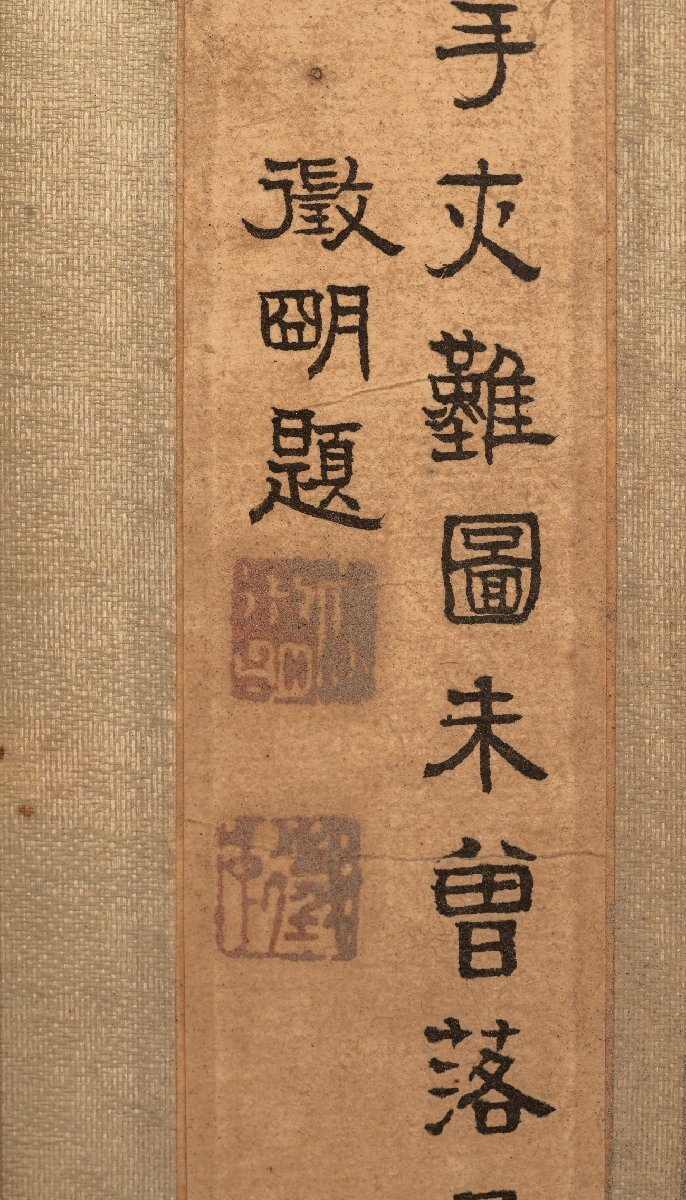 手亦難圖未曾落
徵明題